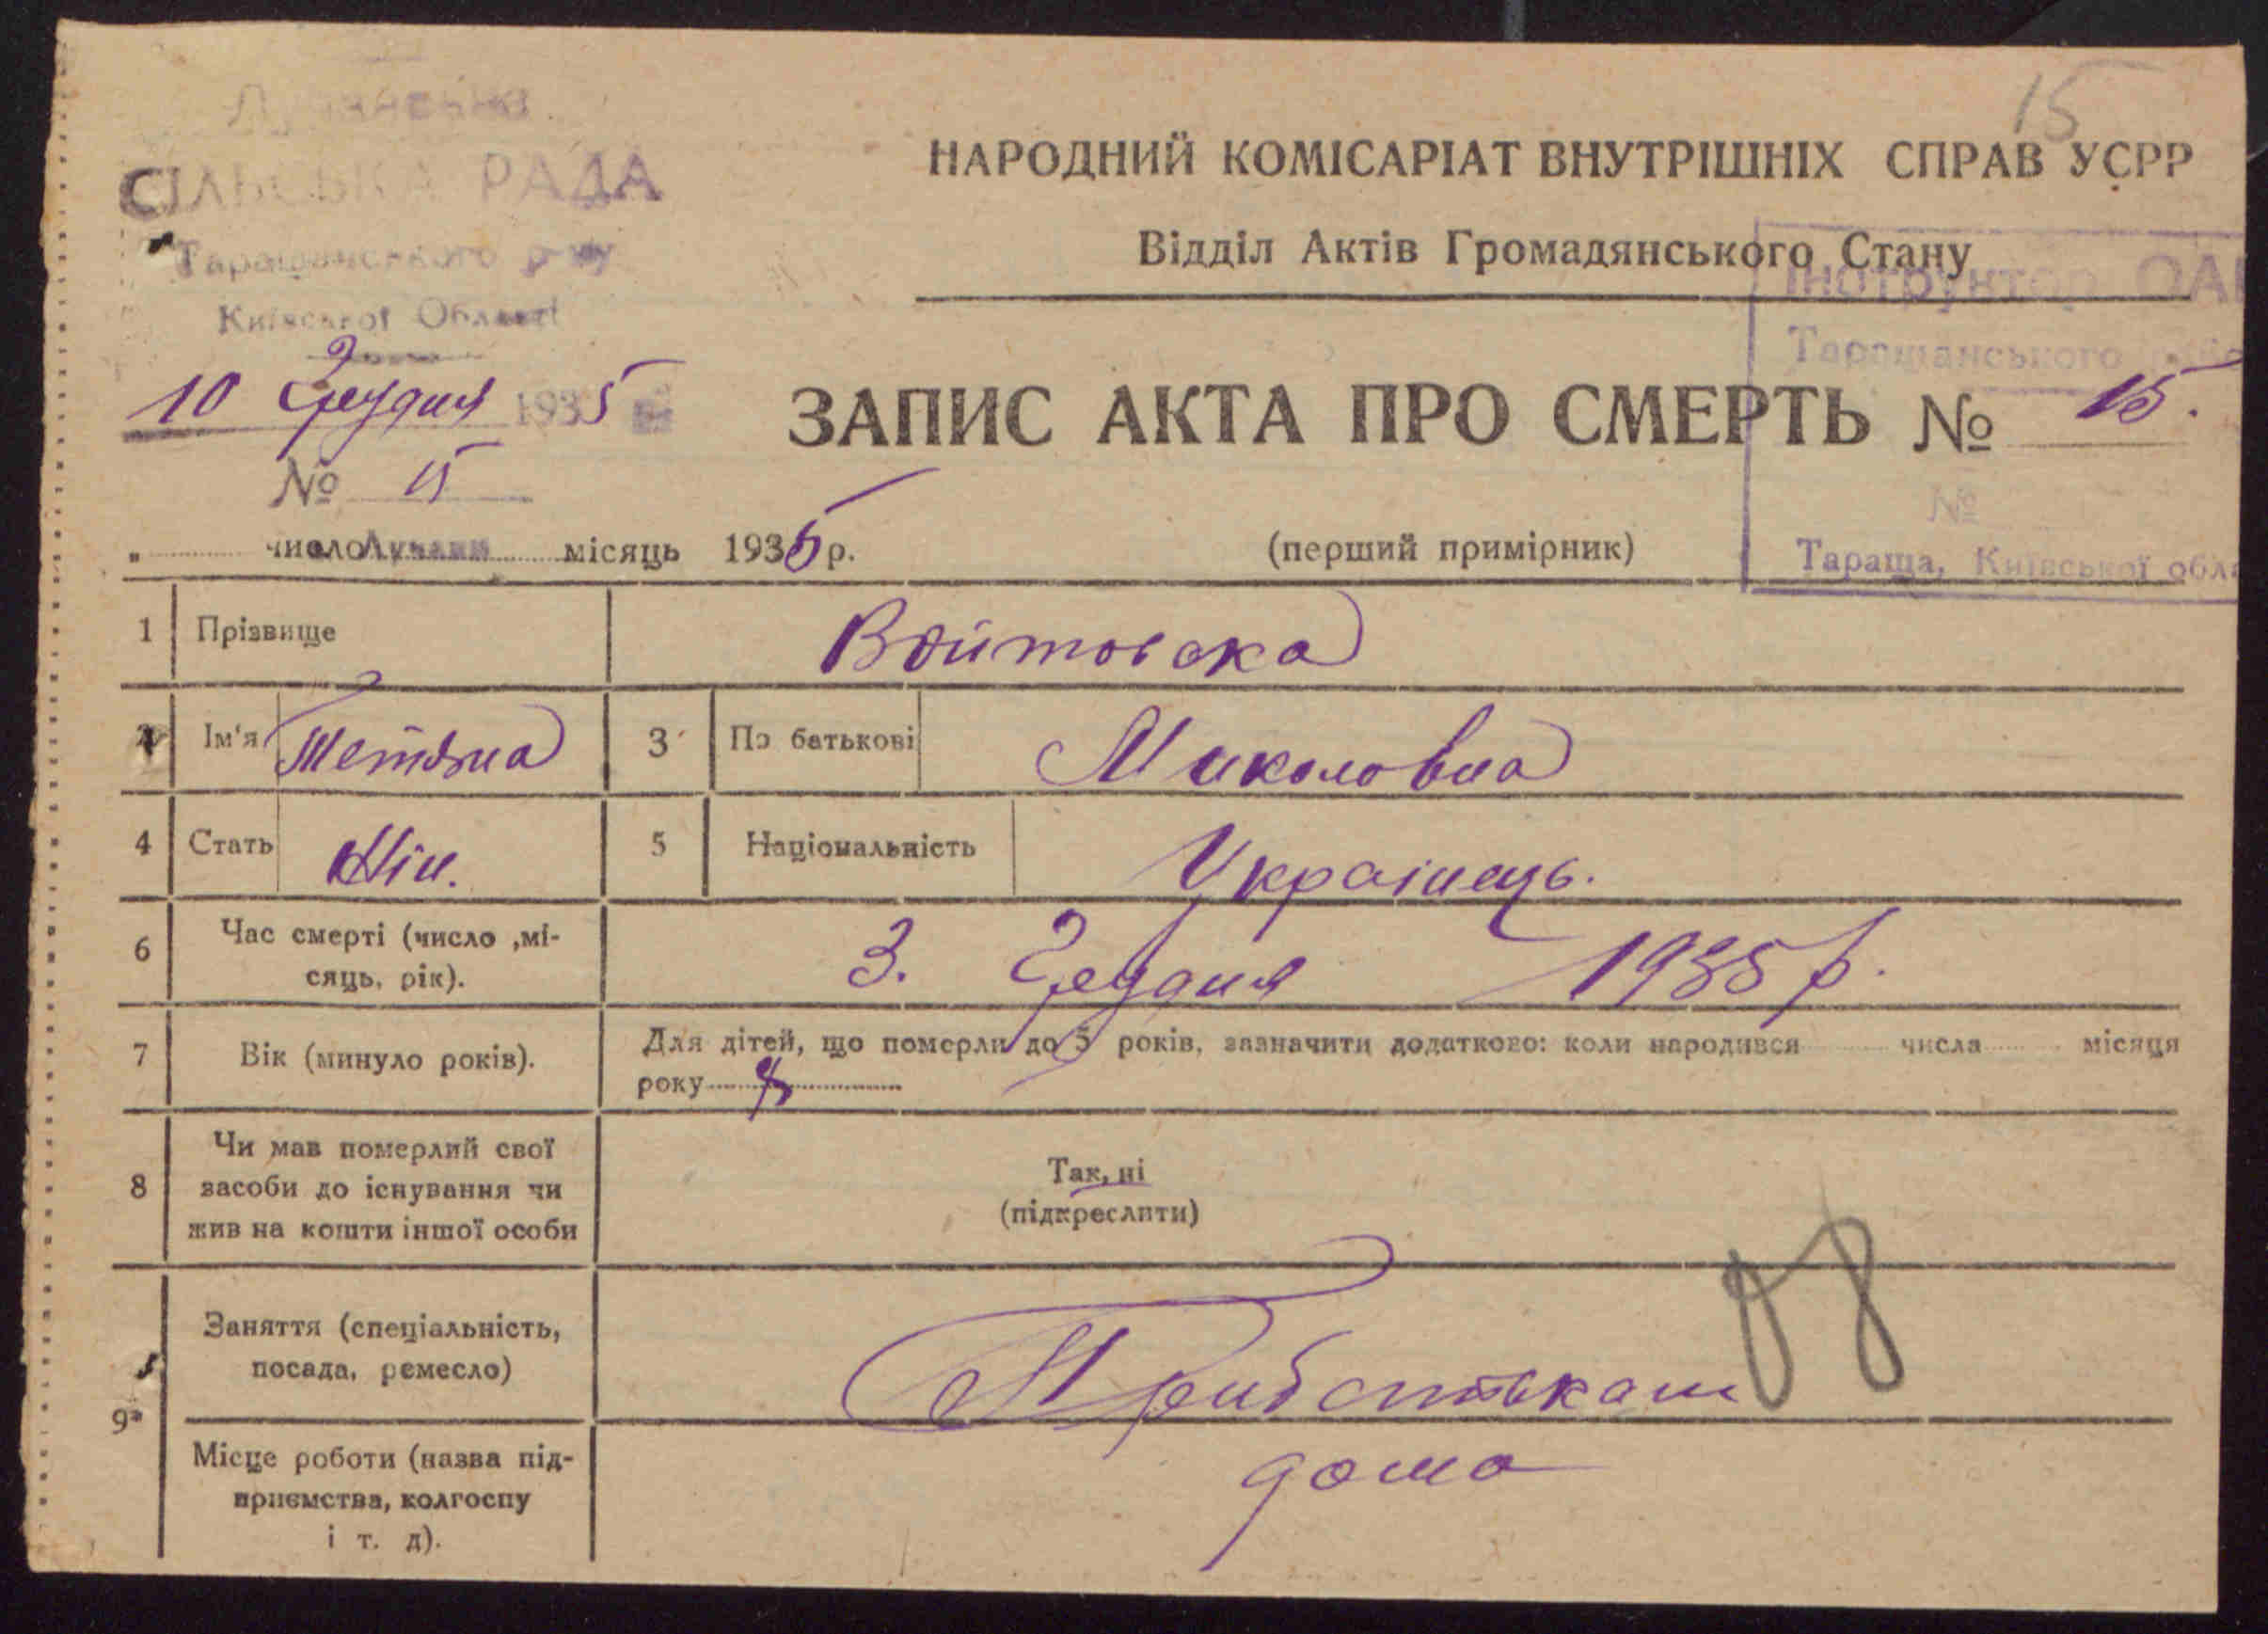 15
СІЛЬСЬКА РАДА
НАРОДНИЙ КОМІСАРІАТ ВНУТРІШНІХ СПРАВ УСРР
Таращанського р-ну
Відділ Актів Громадянського Стану
Інструктор ОА
Київської Області
Таращанського
10 Грудня 1935
ЗАПИС АКТА ПРО СМЕРТЬ № 15.
№ 15
№
" число Лучани місяць 1935 р.
(перший примірник)
Тараща, Київської обла
1 Прізвище Войтовска
2 Ім'я Тетяна 3 По батькові Миколовна
4 Стать Жін. 5 Національність Українець.
6 Час смерті (число ,мі-
сяць, рік).
3. Грудня 1935 р.
7 Вік (минуло років).
Для дітей, що померли до 5 років, зазначити додатково: коли народився числа місяця
року
8 Чи мав померлий свої
засоби до існування чи
жив на кошти іншої особи
Так, ні
(підкреслити)
9 Заняття (спеціальність,
посада, ремесло)
При батькам
Місце роботи (назва під-
приємства, колгоспу
і т. д).
дома